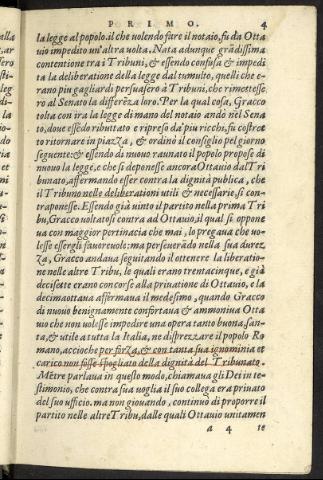 PRIMO. 4
la legge al popolo. il che volendo fare il notaio, fu da Otta
uio impedito un'altra volta. Nata adunque grãdissima
contentione tra i Tribuni, & essendo confusa & impedi
ta la deliberatione della legge dal tumulto, quelli che e-
rano piu gagliardi persuasero à Tribuni, che rimettesse
ro al Senato la differẽza loro. Per la qual cosa, Gracco
tolta con ira la legge di mano del notaio andò nel Sena
to, doue essẽdo ributtato e ripreso da' piu ricchi, fu costret
to ritornare in piazza, & ordinò il consiglio pel giorno
seguente: & essendo di nuouo raunato il popolo propose di
nuouo la legge, e che si deponesse ancora Ottauio dal Tri
bunato, affermando esser contra la dignità publica, che
il Tribuno nelle deliberationi utili & necessarie si con-
traponesse. Essendo già uinto il partito nella prima Tri
bu, Gracco uoltatosi contra ad Ottauio, il qual si oppone
ua con maggior pertinacia che mai, lo pregaua che uo-
lesse essergli fauoreuole: ma perseuerãdo nella sua durez
za, Gracco andaua seguitando il ottenere la liberatio-
ne nelle altre Tribu, le quali erano trentacinque, e già
decisette erano concorse alla priuatione di Ottauio, e la
decimaottaua affermaua il medesimo, quando Gracco
di nuouo benignamente confortaua & ammoniua Otta
uio che non uolesse impedire una opera tanto buona, san-
ta, & utile a tutta la Italia, ne disprezzare il popolo Ro
mano, accioche per forza, & con tanta sua ignominia et
carico non fosse spogliato della dignità del Tribunato.
Mẽtre parlaua in questo modo, chiamaua gli Dei in te-
stimonio, che contra sua uoglia il suo collega era priuato
del suo ufficio. ma non giouando, continuò di proporre il
partito nelle altre Tribu, dalle quali Ottauio unitamen
a 4 te